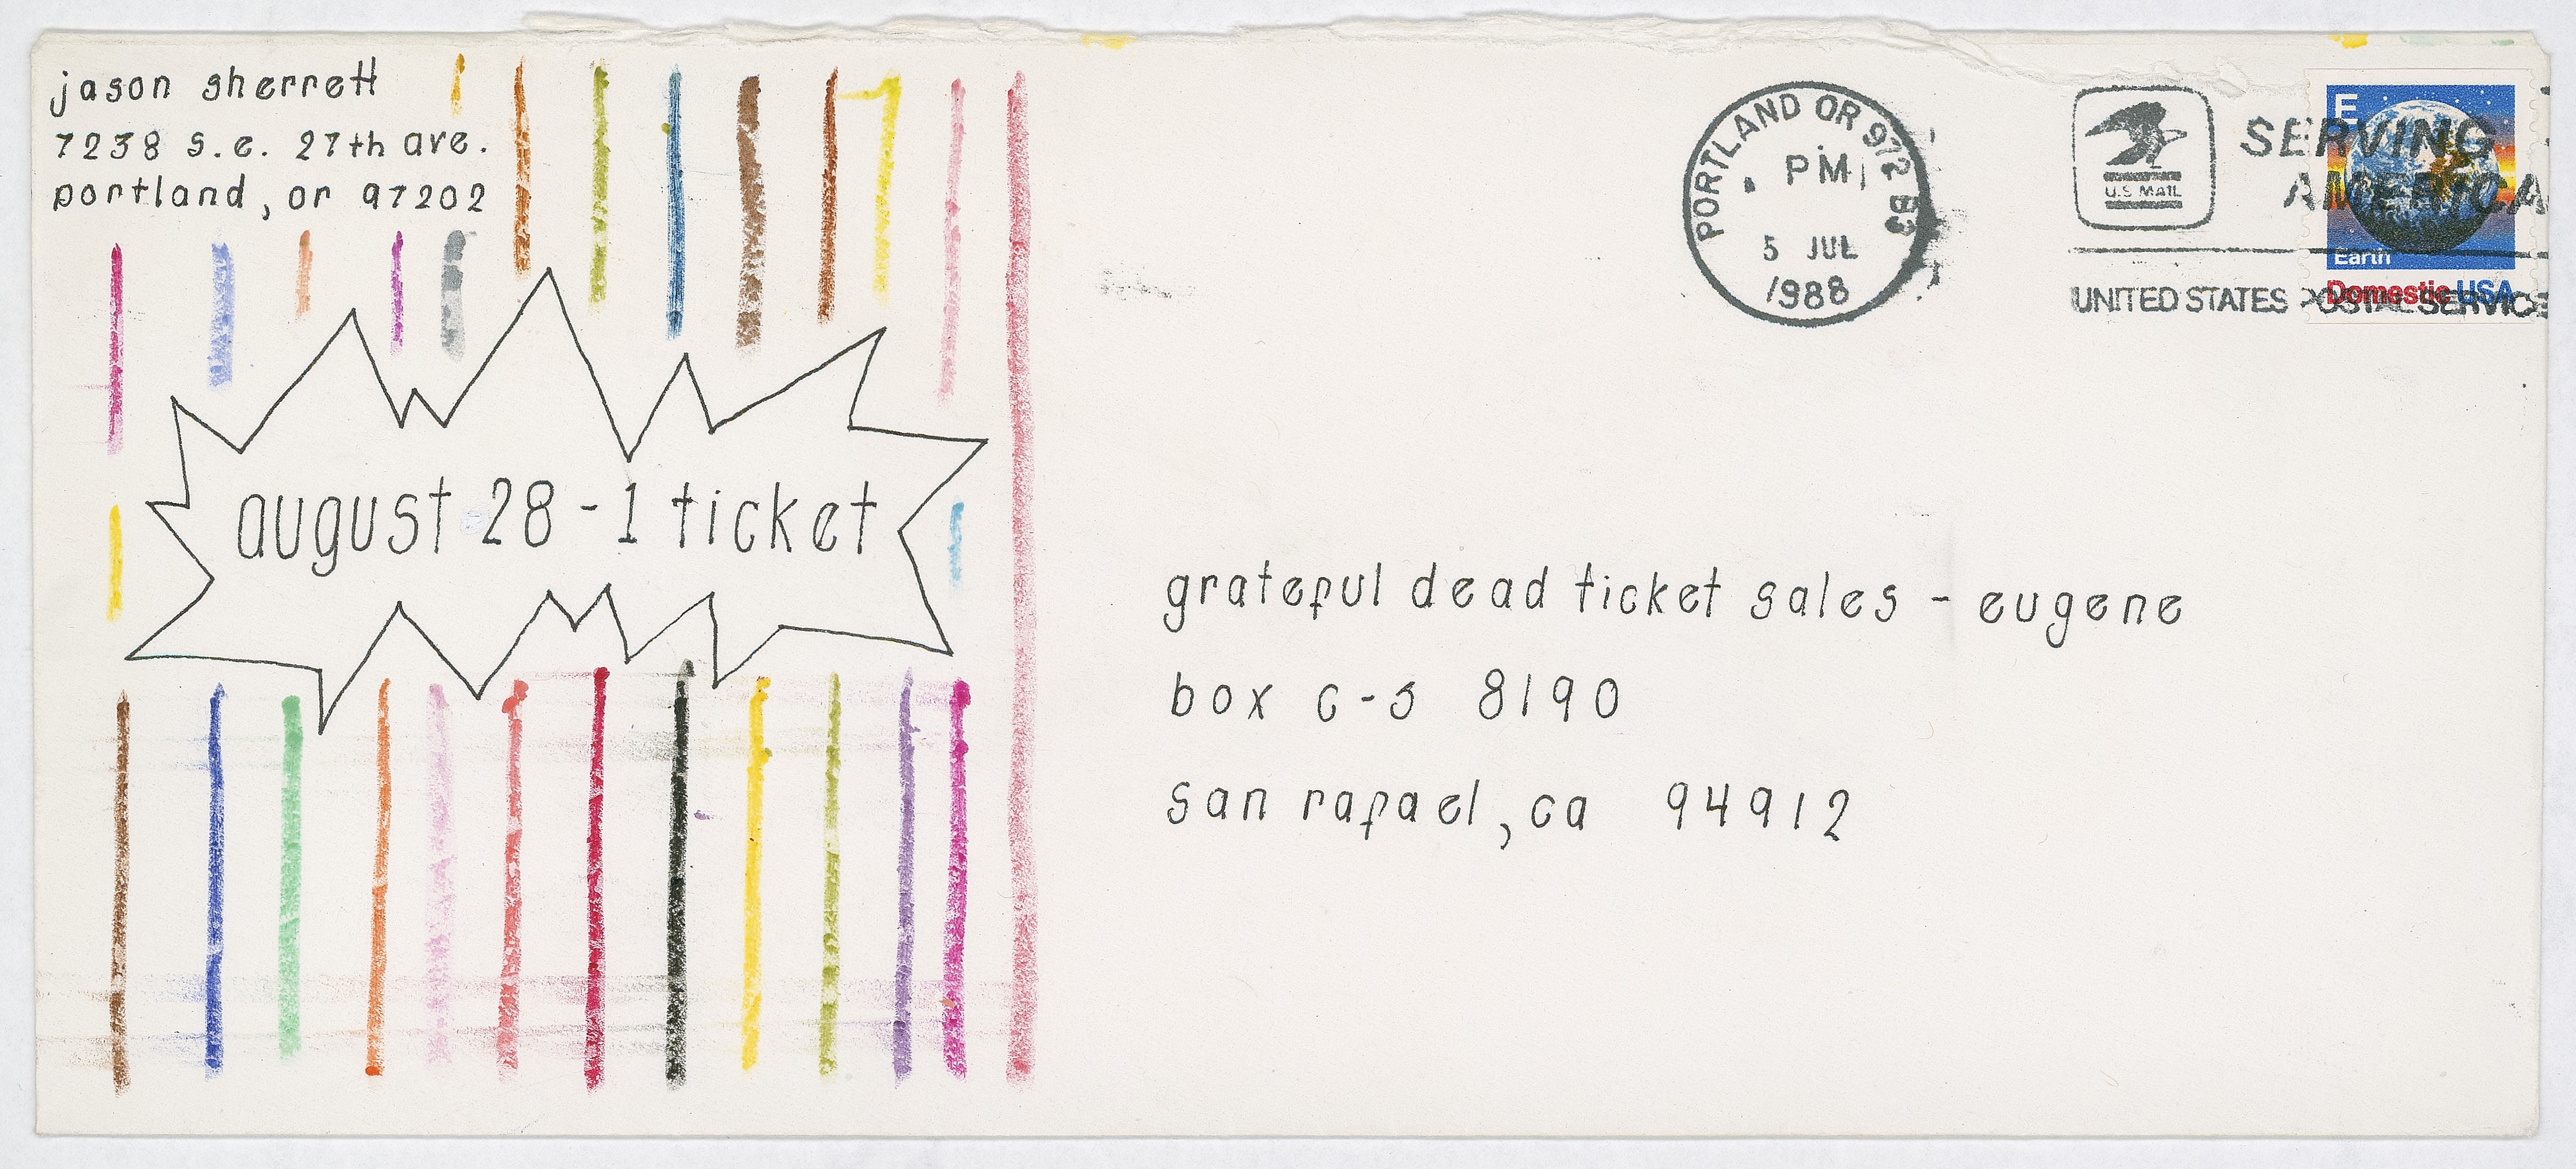 jason sherrett
7238 s.e. 27th ave.
portland, or 97202
august 28 - 1 ticket
PORTLAND OR 972
PM
5 JUL
1988
U.S. MAIL
SERVING
AMERICA
UNITED STATES POSTAL SERVICE
E
Earth
Domestic USA
grateful dead ticket sales - eugene
box c-s 8190
san rafael, ca 94912